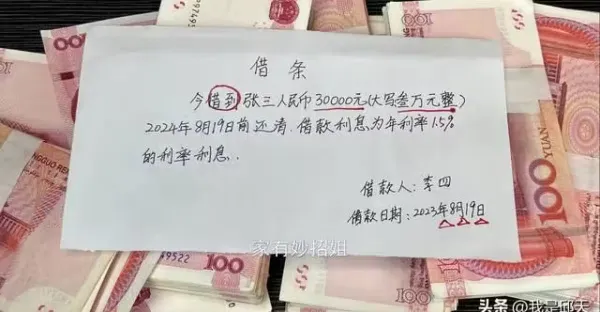 借条
今借到张三人民币30000元(大写叁万元整)
2024年8月19日前还清.借款利息为年利率1.5%
的利率利息.
借款人:李四
借款日期:2023年8月19日
家有妙招姐
头条 @我是邱天
100
100
100
YUAN